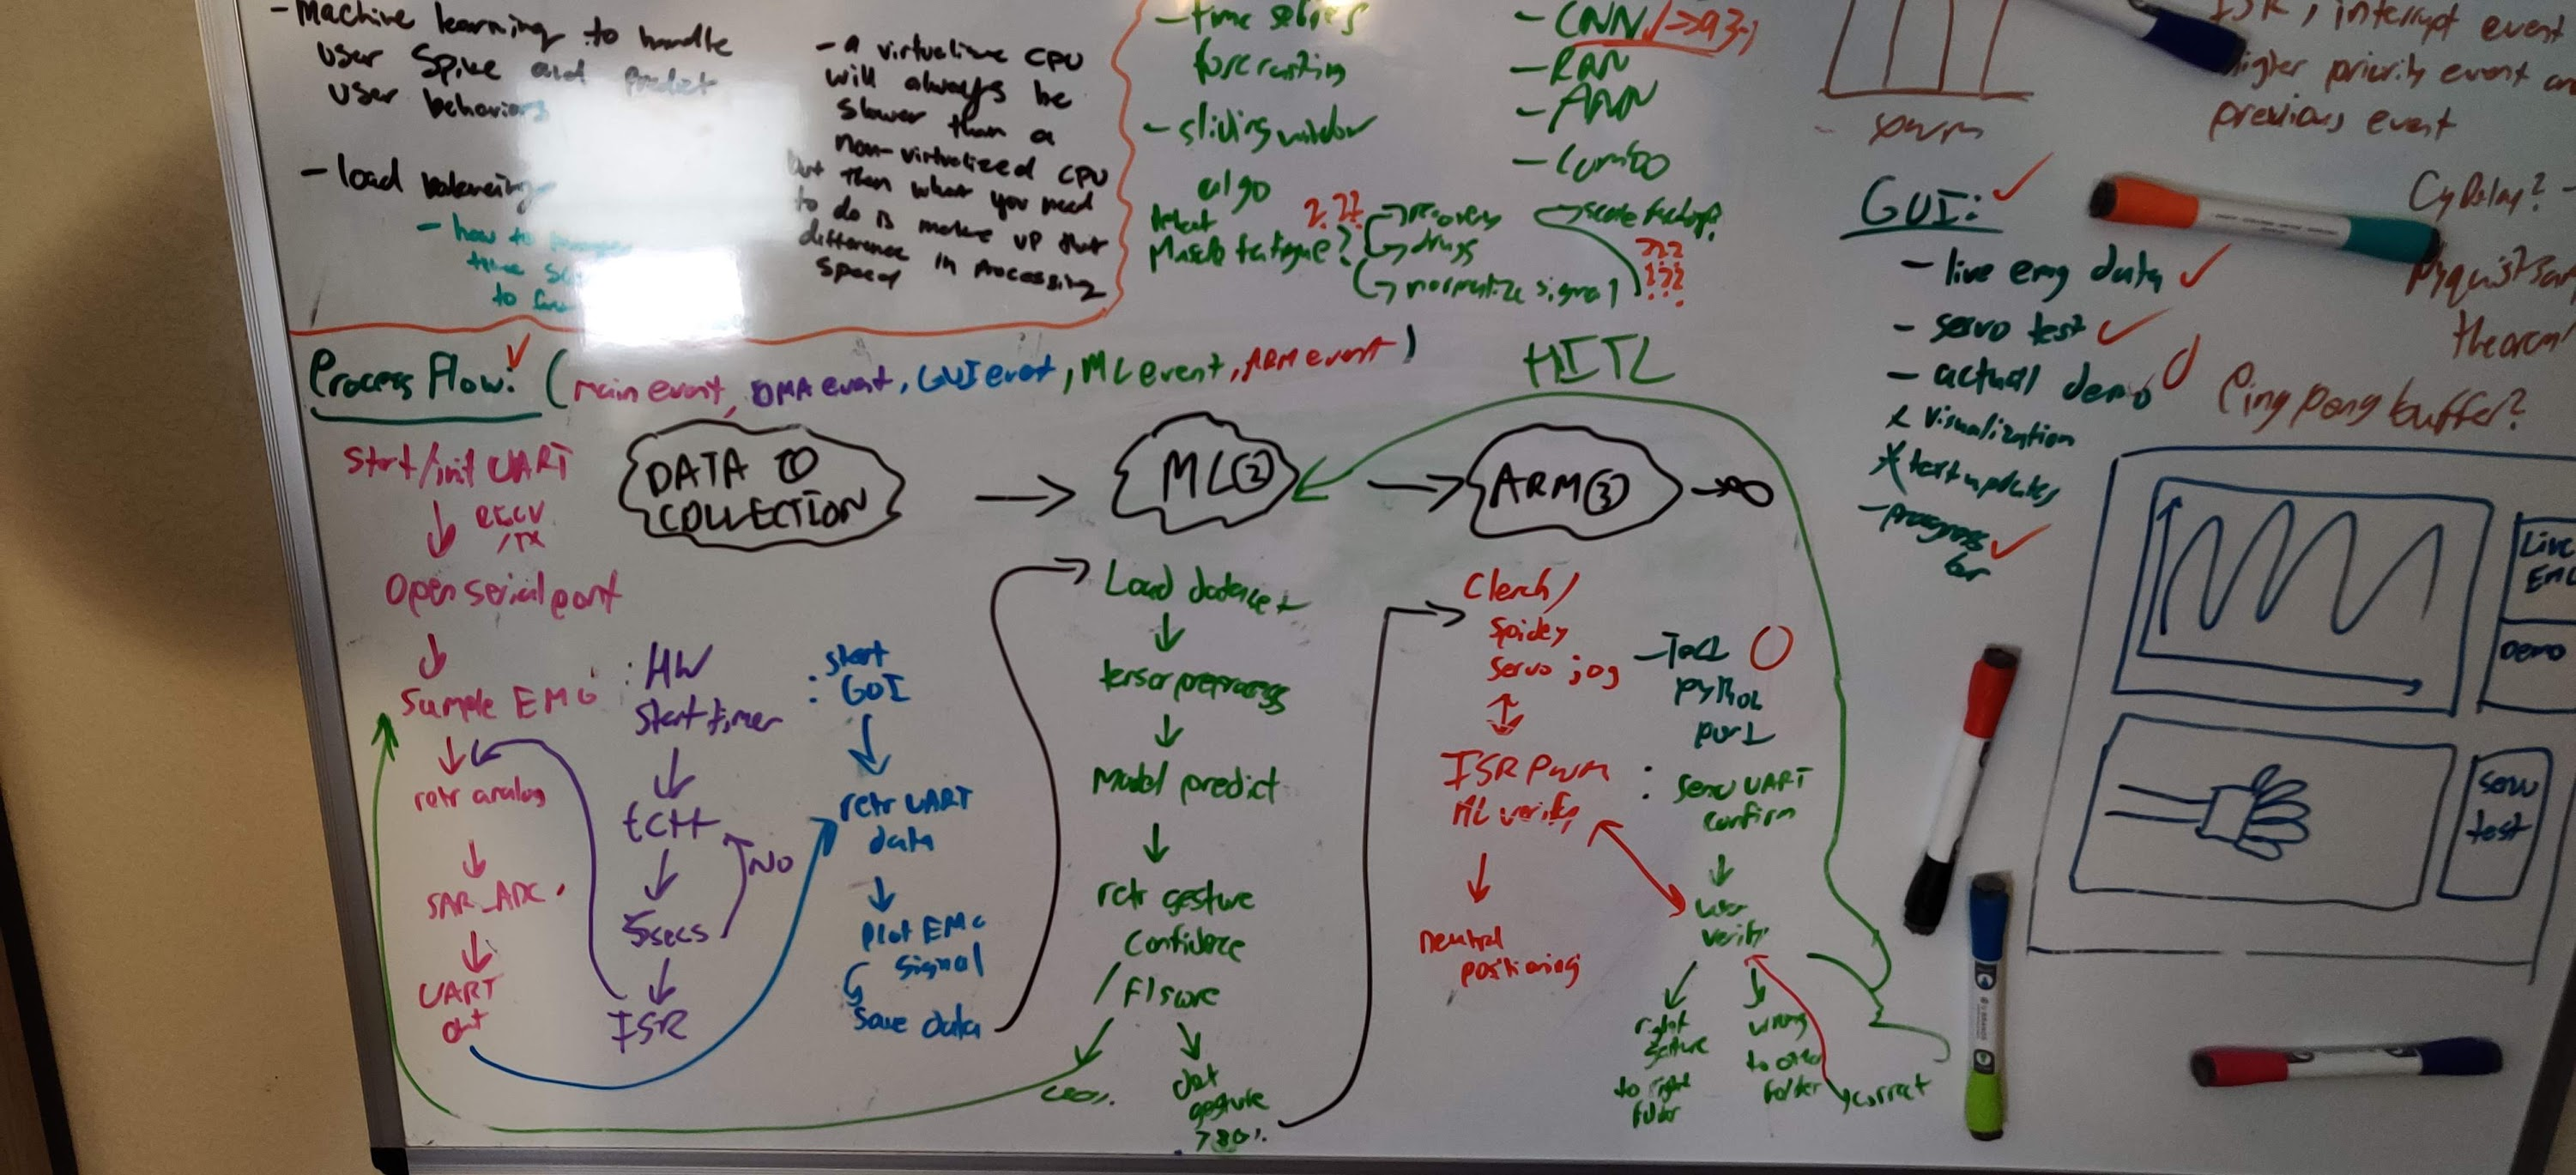 - Machine learning to handle
user spike and predict
user behaviors
- load balancing
- how to
time
to
- a virtualized CPU
will always be
slower than a
non-virtualized CPU
but then what you need
to do is make up that
difference in processing
speed
- time series
forecasting
- sliding window
algo
detect
muscle fatigue?
? ??
recovery
drugs
normalize signal
- CNN
- RNN
- ANN
- combo
scale factor?
???
PWM
ISR, interrupt event
higher priority event
previous event
CyDelay?
theorem
Ping pong buffer?
GUI:
- live emg data
- servo test
- actual demo
* visualization
* text updates
- progress
bar
Live
EMG
Demo
servo
test
Process Flow: (main event, DMA event, GUI event, ML event, ARM event)
HITL
DATA ①
COLLECTION
ML②
ARM③
∞
Start/init UART
recv
/TX
Open serial port
Sample EMG
retr analog
SAR_ADC
UART
out
: HW
start timer
tC++
5secs
NO
ISR
: start
GUI
retr UART
data
plot EMG
signal
save data
Load dataset
tensor preprocess
Model predict
retr gesture
confidence
/ F1 score
<80%
det
gesture
>80%
Clench/
Spidey
servo jog
ISR PWM
ML verify
neutral
positioning
python
: send UART
confirm
user
verify
right
gesture
to right
folder
wrong
to other
folder
correct